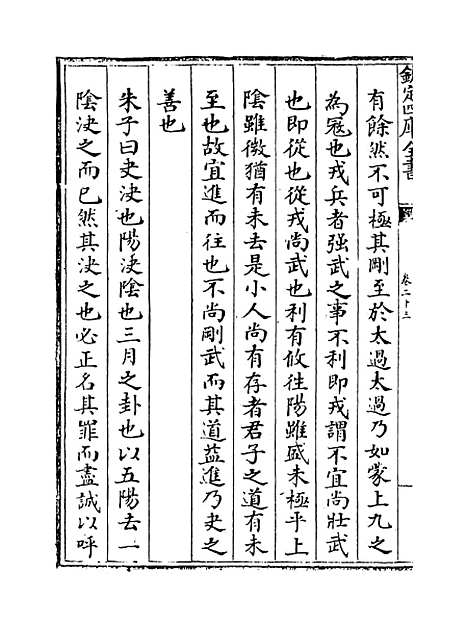 欽定四庫全書
卷二十二
有餘然不可極其剛至於太過太過乃如蒙上九之
為寇也戎兵者强武之事不利即戎謂不宜尚壯武
也即從也從戎尚武也利有攸往陽雖盛未極乎上
陰雖微猶有未去是小人尚有存者君子之道有未
至也故宜進而往也不尚剛武而其道益進乃夬之
善也
朱子曰夬決也陽決陰也三月之卦也以五陽去一
陰決之而已然其決之也必正名其罪而盡誠以呼